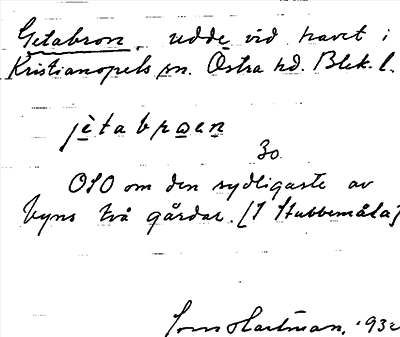 Getabron, udde vid havet i
Kristianopels sn. Östra hd. Blek. l.
jètabroen
30
OSO om den sydligaste av
byns två gårdar. [I Stubbemåla]
Hartman, 1932